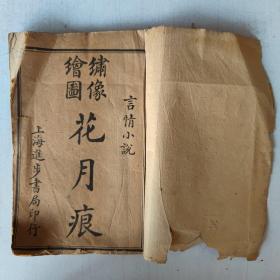 言情小說
繡像
繪圖
花月痕
上海進步書局印行